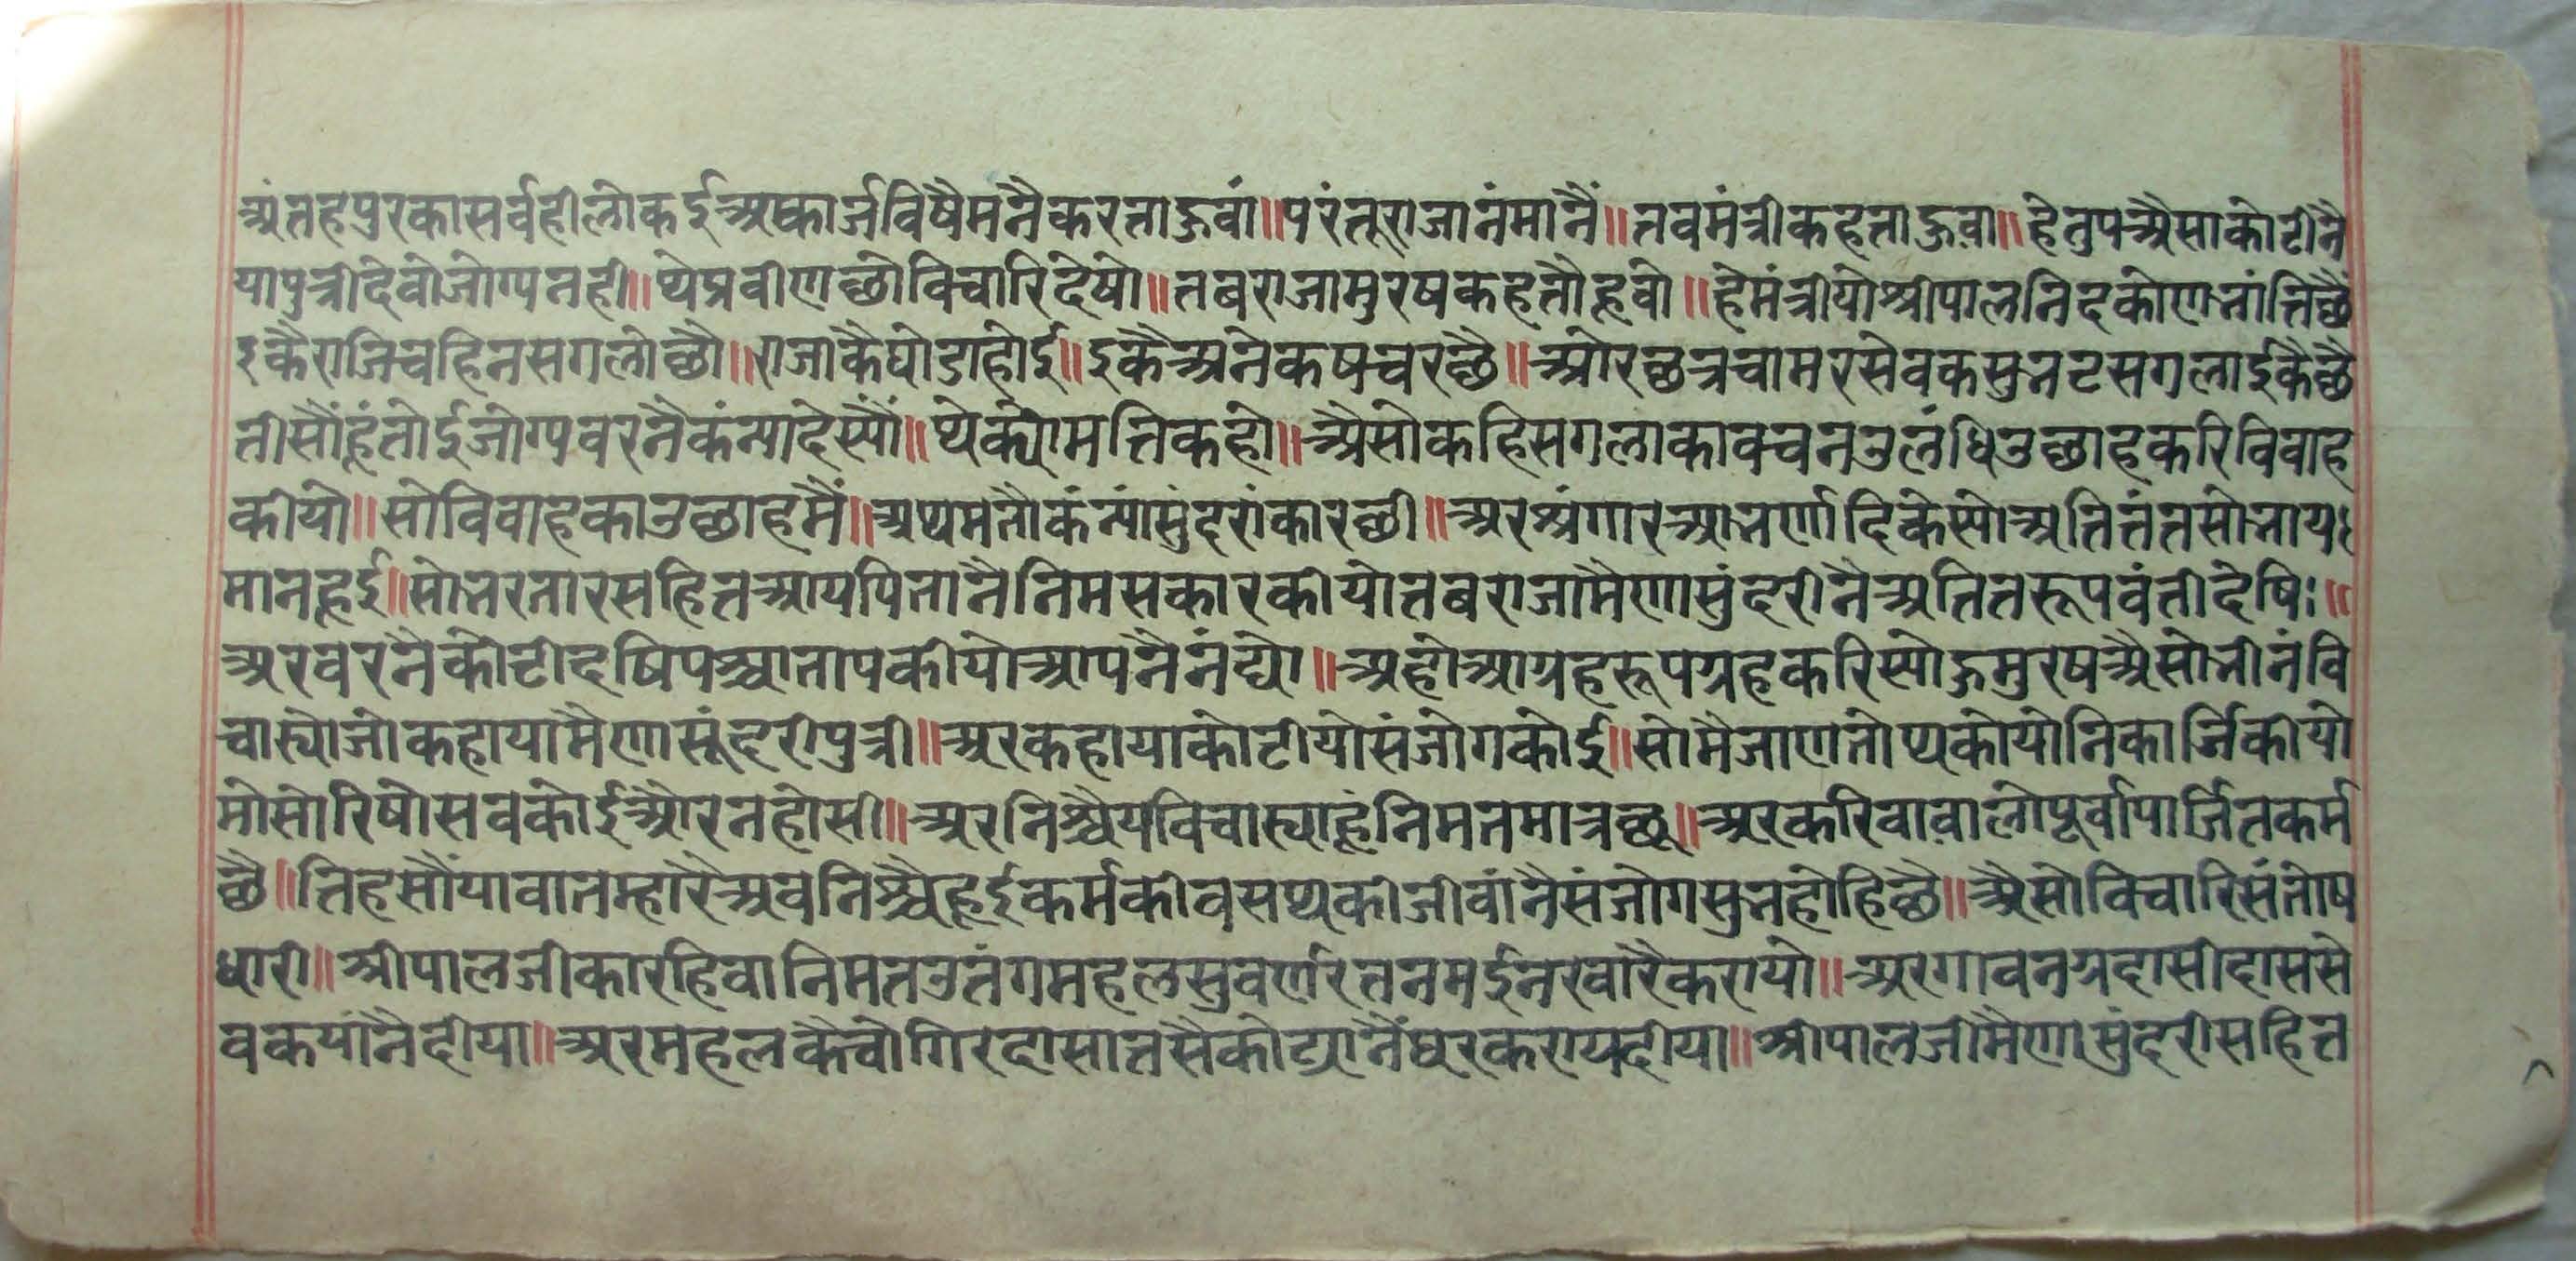 अंतहपुरकासर्वहीलोकईअकार्जविषैमनैकरताहुवां॥परंतूराजानंमानैं॥तबमंत्रीकहताहुवा॥हेनृपअैसाकोटीनै
यापुत्रीदेवोजोग्यनही॥थेप्रवीणछोविचारिदेषो॥तबराजामुरषकहतौहूवो॥हेमंत्रीयोश्रीपालनिदकोणभांतिछै
इकैराजचिहिनसगलोछौ॥राजाकैघोडाहोई॥इकैअनेकषचरछै॥औरछत्रचामरसेवकसुभटसगलाईकैछै
तीसौंहूंतोईजोग्यवरनैकंन्यादेस्यौं॥थेक्योंमतिकहो॥अैसोकहिसगलाकावचनउलंघिउछाहकरिविवाह
कीयो॥सोविवाहकाउछाहमैं॥प्रथमतौकंन्यांसुंदरांकारछी॥अरश्रंगारआभर्णादिकेस्योअतितंतसोभाय
मानहूई॥सोभरतारसहितआयपितानैनिमसकारकीयोतबराजामैणासुंदरीनैअतितरूपवंतीदेषि॥
अरवरनैकोटीदषिपश्चातापकीयोआपनैनंद्यो॥अहोआग्रहरूपग्रहकरिस्योहुमुरषअैसोभीनंवि
चास्योजोकहायामैणासूंदरीपुत्री॥अरकहायाकोटीयोसंजोगकोई॥सोमैजाणतोथकोयोनिकार्जिकीयो
मोसोरिषोसवकोईऔरनहोसी॥अरनिश्चैयविचास्याहूंनिमतमात्रछू॥अरकरिवावालोपूर्वोपार्जितकर्म
छै॥तिहसौंयावातम्हारैअवनिश्चैहूईकर्मकोवसथकोजीवांनैसंजोगसुभहोहिछै॥अैसोविचारिसंतोष
धारी॥श्रीपालजीकारहिवानिमतउतंगमहलसुवर्णरतनमईनरवारैकरायो॥अरगावनग्रदासीदाससे
वकयांनैदीया॥अरमहलकैचोगिरदासातसैकोट्यानैंघरकरायदीया॥श्रीपालजीमैणासुंदरीसहित